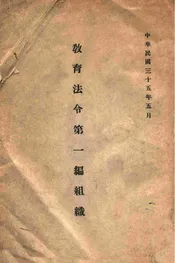 中華民國三十五年五月
教育法令第一編組織